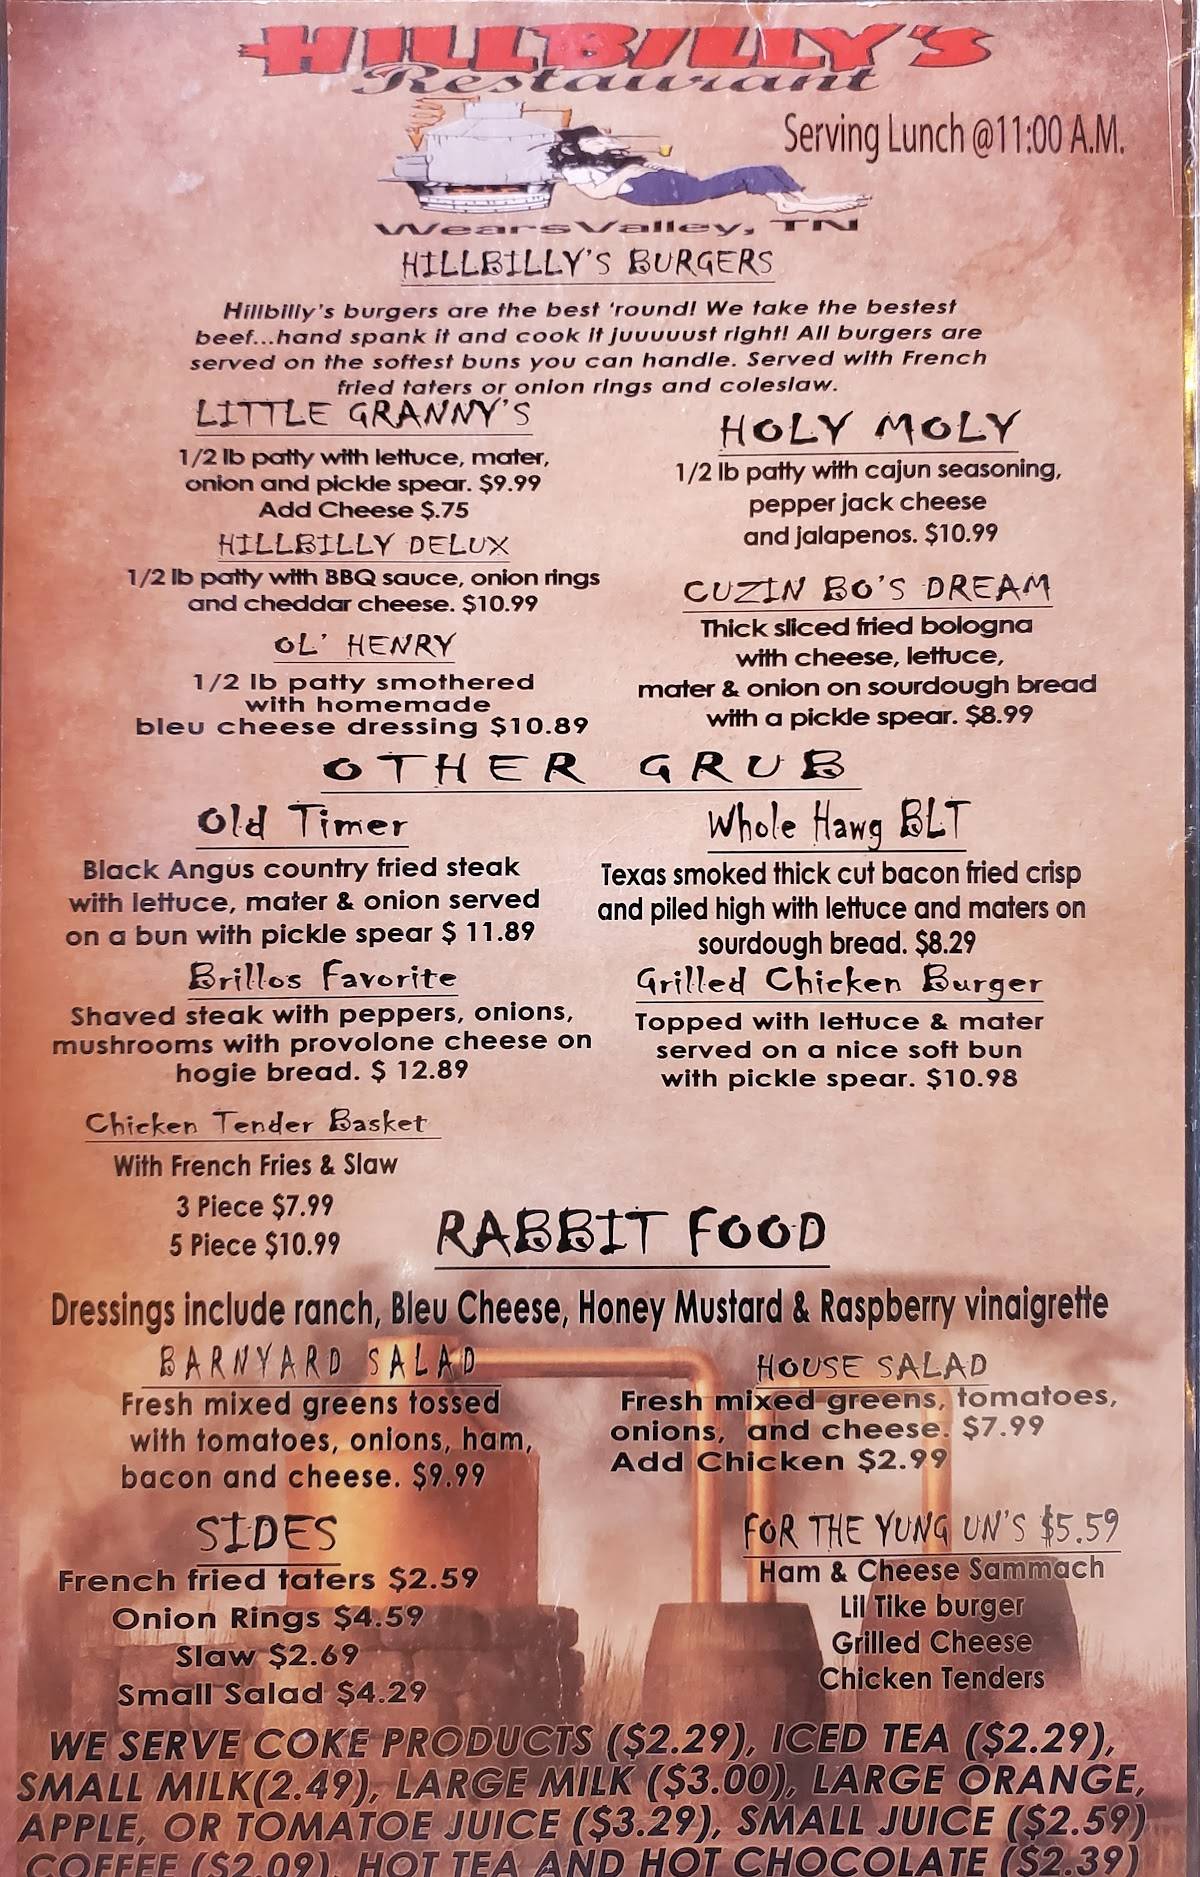 HILLBILLY'S
Restaurant
Serving Lunch @11:00 A.M.
Wears Valley, TN
HILLBILLY'S BURGERS
Hillbilly's burgers are the best 'round! We take the bestest
beef...hand spank it and cook it juuuuust right! All burgers are
served on the softest buns you can handle. Served with French
fried taters or onion rings and coleslaw.
LITTLE GRANNY'S
1/2 lb patty with lettuce, mater,
onion and pickle spear. $9.99
Add Cheese $.75
HILLBILLY DELUX
1/2 lb patty with BBQ sauce, onion rings
and cheddar cheese. $10.99
OL' HENRY
1/2 lb patty smothered
with homemade
bleu cheese dressing $10.89
HOLY MOLY
1/2 lb patty with cajun seasoning,
pepper jack cheese
and jalapenos. $10.99
CUZIN BO'S DREAM
Thick sliced fried bologna
with cheese, lettuce,
mater & onion on sourdough bread
with a pickle spear. $8.99
OTHER GRUB
Old Timer
Black Angus country fried steak
with lettuce, mater & onion served
on a bun with pickle spear $ 11.89
Brillos Favorite
Shaved steak with peppers, onions,
mushrooms with provolone cheese on
hogie bread. $ 12.89
Chicken Tender Basket
With French Fries & Slaw
3 Piece $7.99
5 Piece $10.99
Whole Hawg BLT
Texas smoked thick cut bacon fried crisp
and piled high with lettuce and maters on
sourdough bread. $8.29
Grilled Chicken Burger
Topped with lettuce & mater
served on a nice soft bun
with pickle spear. $10.98
RABBIT FOOD
Dressings include ranch, Bleu Cheese, Honey Mustard & Raspberry vinaigrette
BARNYARD SALAD
Fresh mixed greens tossed
with tomatoes, onions, ham,
bacon and cheese. $9.99
HOUSE SALAD
Fresh mixed greens, tomatoes,
onions, and cheese. $7.99
Add Chicken $2.99
SIDES
French fried taters $2.59
Onion Rings $4.59
Slaw $2.69
Small Salad $4.29
FOR THE YUNG UN'S $5.59
Ham & Cheese Sammach
Lil Tike burger
Grilled Cheese
Chicken Tenders
WE SERVE COKE PRODUCTS ($2.29), ICED TEA ($2.29),
SMALL MILK(2.49), LARGE MILK ($3.00), LARGE ORANGE,
APPLE, OR TOMATOE JUICE ($3.29), SMALL JUICE ($2.59)
COFFEE ($2.09), HOT TEA AND HOT CHOCOLATE ($2.39)